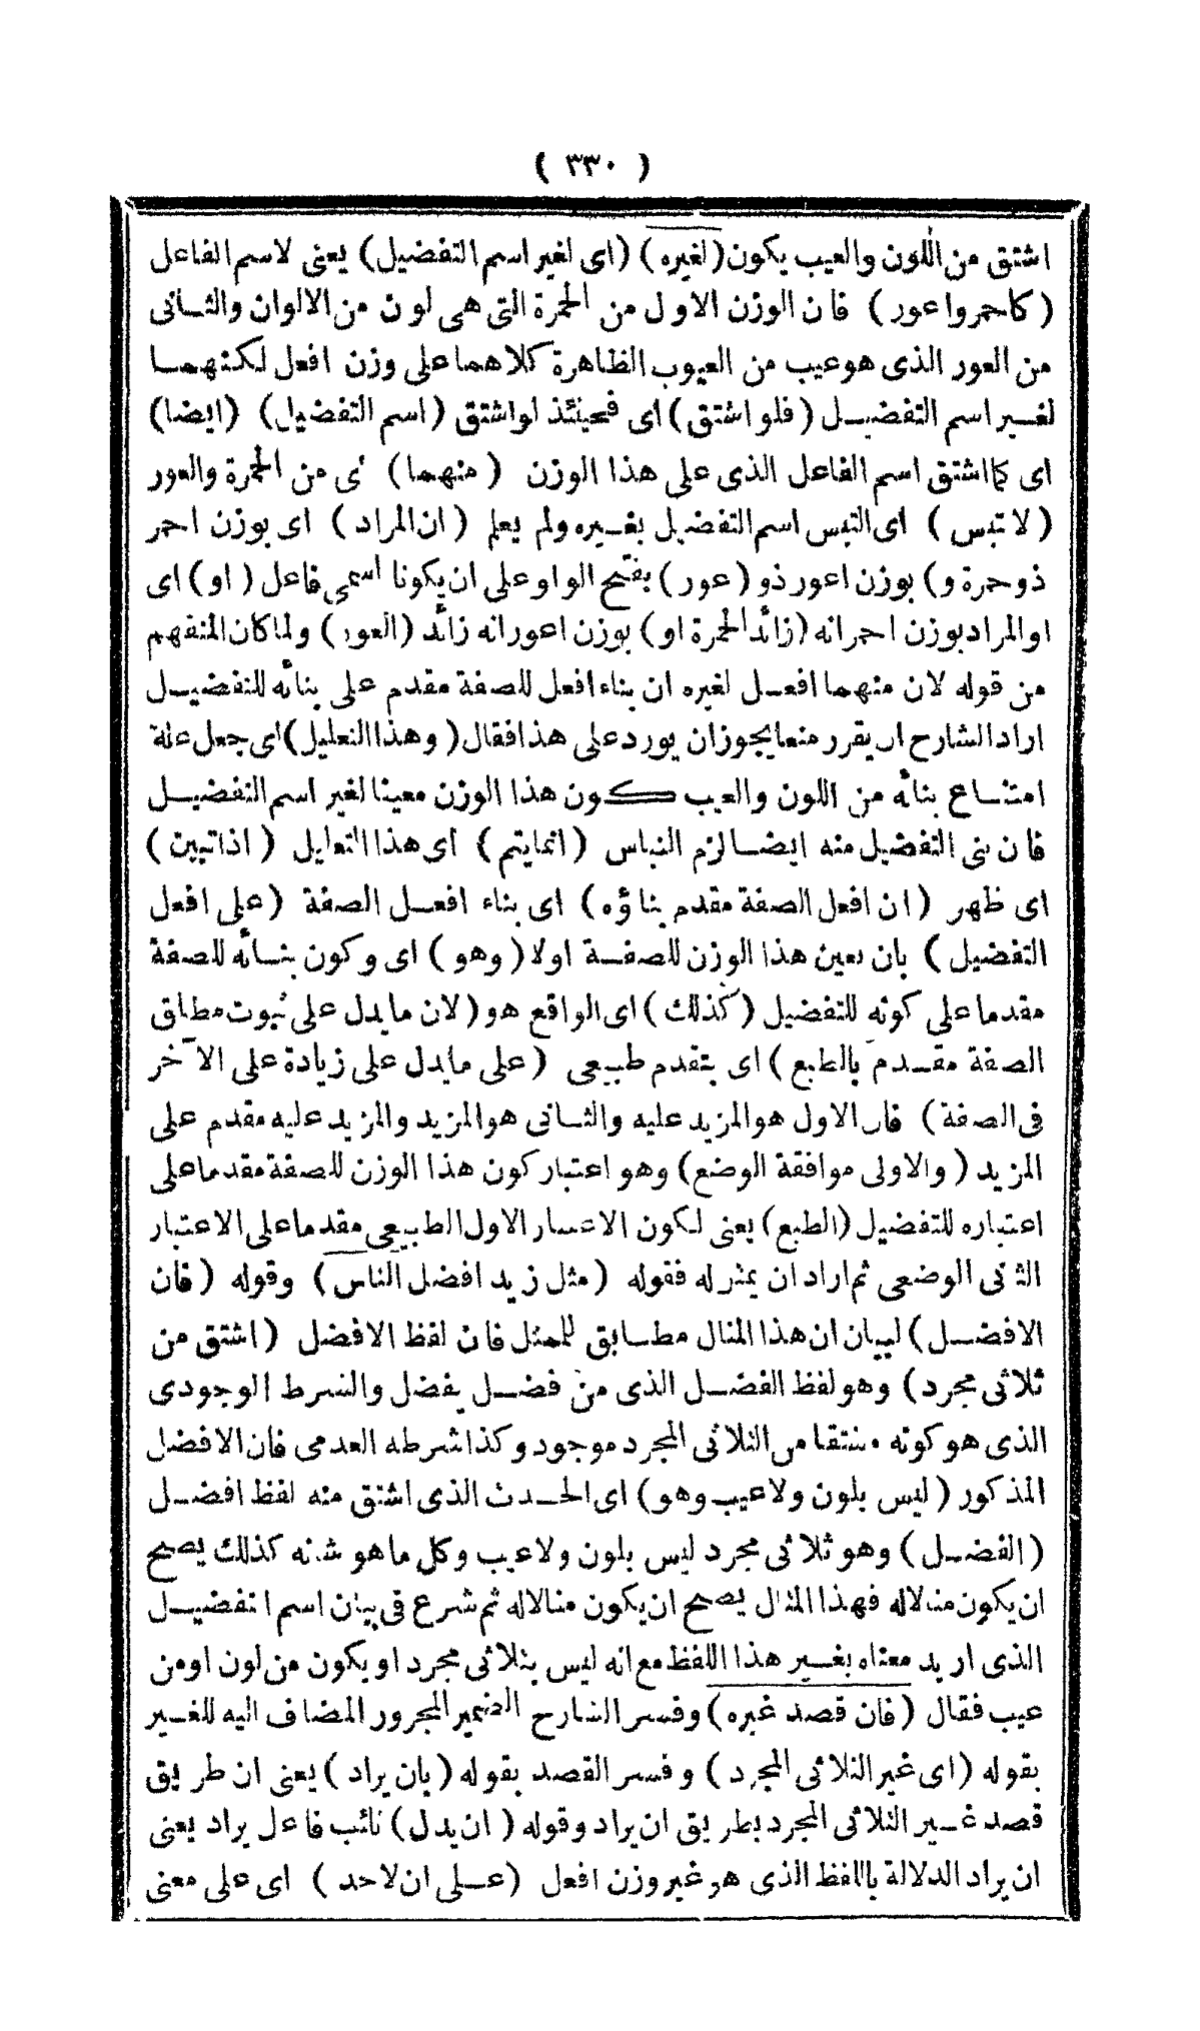 ( ٣٣٠ )
اشتق من اللون والعيب يكون (لغيره) (اى لغير اسم التفضيل) يعنى لاسم الفاعل
(كاحمر واعور) فان الوزن الاول من الحمرة التى هى لون من الالوان والثانى
من العور الذى هو عيب من العيوب الظاهرة كلاهما على وزن افعل لكنهما
لغير اسم التفضيل (فلو اشتق) اى فحينئذ لو اشتق (اسم التفضيل) (ايضا)
اى كما اشتق اسم الفاعل الذى على هذا الوزن (منهما) ى من الحمرة والعور
(لا تبس) اى التبس اسم التفضيل بغيره ولم يعلم (ان المراد) اى بوزن احمر
ذو حمرة و) بوزن اعور ذو (عور) بفتح الواو على ان يكونا اسمى فاعل (او) اى
او المراد بوزن احمر انه (زائد الحمرة او) بوزن اعور انه زائد (العور) ولما كان المنفهم
من قوله لان منهما افعل لغيره ان بناء افعل للصفة مقدم على بنائه للتفضيل
اراد الشارح ان يقرر منعا يجوز ان يورد على هذا فقال (وهذا التعليل) اى جعل علة
امتناع بنائه من اللون والعيب كون هذا الوزن معينا لغير اسم التفضيل
فان بنى التفضيل منه ايضا لزم التباس (انما يتم) اى هذا التعليل (اذا تبين)
اى ظهر (ان افعل الصفة مقدم بناؤه) اى بناء افعل الصفة (على افعل
التفضيل) بان يعين هذا الوزن للصفة اولا (وهو) اى وكون بنائه للصفة
مقدما على كونه للتفضيل (كذلك) اى الواقع هو (لان ما يدل على ثبوت مطلق
الصفة مقدم بالطبع) اى بتقدم طبيعى (على ما يدل على زيادة على الآخر
فى الصفة) فان الاول هو المزيد عليه والثانى هو المزيد والمزيد عليه مقدم على
المزيد (والاولى موافقة الوضع) وهو اعتبار كون هذا الوزن للصفة مقدما على
اعتباره للتفضيل (الطبع) يعنى لكون الاعتبار الاول الطبيعى مقدما على الاعتبار
الثانى الوضعى ثم اراد ان يمثل له فقوله (مثل زيد افضل الناس) وقوله (فان
الافضل) لبيان ان هذا المثال مطابق للممثل فان لفظ الافضل (اشتق من
ثلاثى مجرد) وهو لفظ الفضل الذى من فضل يفضل والشرط الوجودى
الذى هو كونه مشتقا من الثلاثى المجرد موجود وكذا شرطه العدمى فان الافضل
المذكور (ليس بلون ولا عيب وهو) اى الحدث الذى اشتق منه لفظ افضل
(الفضل) وهو ثلاثى مجرد ليس بلون ولا عيب وكل ما هو شانه كذلك يصح
ان يكون مثالا له فهذا المثال يصح ان يكون مثالا له ثم شرع فى بيان اسم التفضيل
الذى اريد معناه بغير هذا اللفظ مع انه ليس بثلاثى مجرد او يكون من لون او من
عيب فقال (فان قصد غيره) وفسر الشارح الضمير المجرور المضاف اليه للغير
بقوله (اى غير الثلاثى المجرد) وفسر القصد بقوله (بان يراد) يعنى ان طريق
قصد غير الثلاثى المجرد بطريق ان يراد وقوله (ان يدل) نائب فاعل يراد يعنى
ان يراد الدلالة باللفظ الذى هو غير وزن افعل (على ان لاحد) اى على معنى